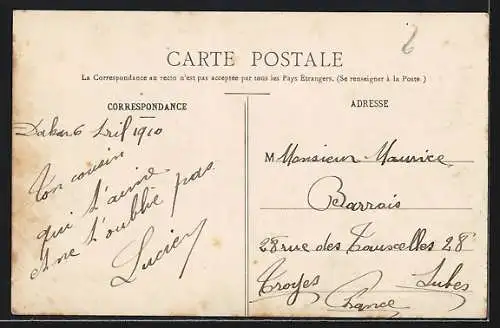 6
CARTE POSTALE
La Correspondance au recto n'est pas acceptée par tous les Pays Etrangers. (Se renseigner à la Poste.)
CORRESPONDANCE
Dakar 6 Avril 1910
Ton cousin
qui t'aime
et ne t'oublie pas
Lucien
ADRESSE
M Monsieur Maurice
Barrois
28 rue des Tauxelles 28
Troyes Aube
France